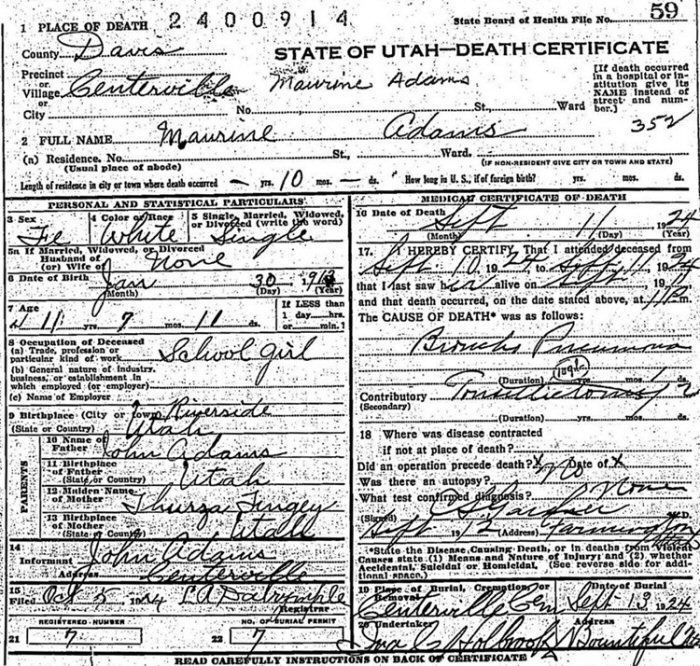 1 PLACE OF DEATH 2400914
State Board of Health File No. 59
County Davis
STATE OF UTAH—DEATH CERTIFICATE
Precinct
or
Village Centerville Maurine Adams
or
City No St., Ward
[If death occurred
in a hospital or in-
stitution give its
NAME instead of
street and num-
ber.]
352
2 FULL NAME Maurine Adams
(a) Residence. No. St., Ward.
(Usual place of abode) (IF NON-RESIDENT GIVE CITY OR TOWN AND STATE)
Length of residence in city or town where death occurred — yrs. 10 mos. — ds. How long in U. S., if of foreign birth?
PERSONAL AND STATISTICAL PARTICULARS
3 Sex 4 Color or Race 5 Single, Married, Widowed,
or Divorced (write the word)
Fe White Single
5a If Married, Widowed, or Divorced
Husband of
(or) Wife of None
6 Date of Birth Jan 30
(Month) (Day) (Year)
7 Age If LESS than
1 day hrs.
or min.?
11 yrs. 7 mos. 11 ds.
8 Occupation of Deceased
(a) Trade, profession or
particular kind of work School girl
(b) General nature of industry,
business, or establishment in
which employed (or employer)
(c) Name of Employer
9 Birthplace (City or town) Riverside
(State or Country) Utah
PARENTS
10 Name of
Father John Adams
11 Birthplace
of Father
(State or Country) Utah
12 Maiden Name
of Mother Thurza Tingey
13 Birthplace
of Mother
(State or Country) Utah
14
Informant John Adams
Address Centerville
15
Filed Oct 5 1924 LA Dalrymple
Registrar
REGISTERED NUMBER NO. OF BURIAL PERMIT
21 7 22 7
MEDICAL CERTIFICATE OF DEATH
16 Date of Death Sept 11 1924
(Month) (Day) (Year)
17. I HEREBY CERTIFY, That I attended deceased from
Sept 10, 1924 to Sept 11 1924
that I last saw her alive on Sept
and that death occurred, on the date stated above, at
The CAUSE OF DEATH* was as follows:
Broncho Pneumonia
(Duration) yrs. mos.
Contributory
(Secondary)
(Duration) yrs.
18 Where was disease contracted
if not at place of death?
Did an operation precede death? No Date of X
Was there an autopsy?
What test confirmed diagnosis? None
(Signed) Gardner M.D.
Sept 12 (Address) Farmington
*State the Disease Causing Death, or in deaths from Violent
Causes state (1) Means and Nature of Injury; and (2) whether
Accidental, Suicidal or Homicidal. (See reverse side for addi-
tional space.)
19 Place of Burial, Cremation, or Removal Date of Burial
Centerville Cem Sept 13 1924
20 Undertaker Address
Holbrook Bountiful
READ CAREFULLY INSTRUCTIONS ON BACK OF CERTIFICATE